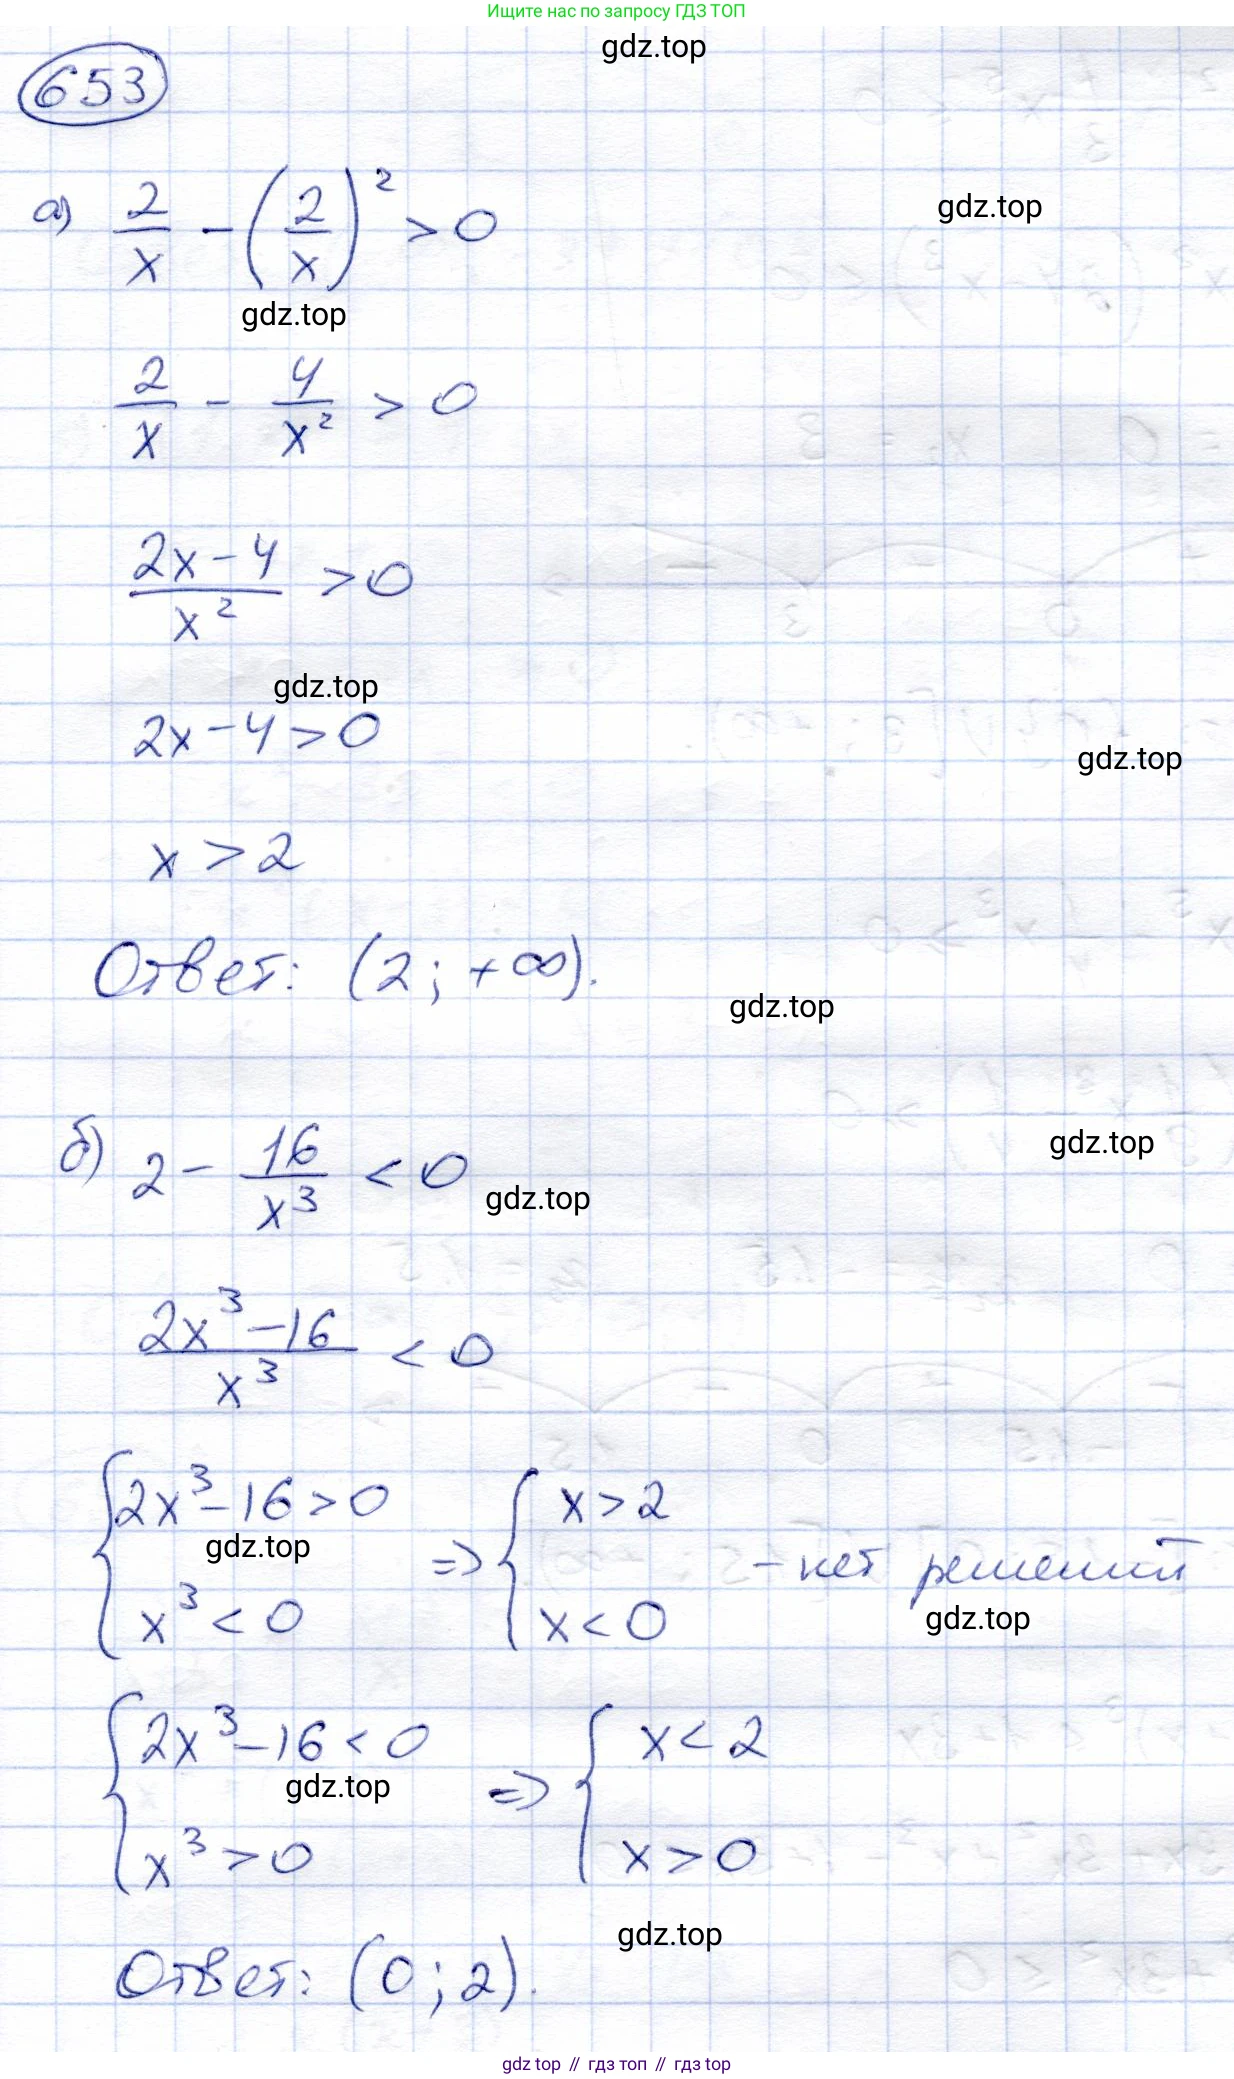 Ищите нас по запросу ГДЗ ТОП
gdz.top
653
а) 2/x - (2/x)² > 0
gdz.top
gdz.top
2/x - 4/x² > 0
(2x-4)/x² > 0
gdz.top
2x-4>0
gdz.top
x > 2
Ответ: (2; +∞).
gdz.top
б) 2 - 16/x³ < 0
gdz.top
gdz.top
(2x³-16)/x³ < 0
{ 2x³-16>0, x³<0 => { x>2, x<0 - нет решений
gdz.top
gdz.top
{ 2x³-16<0, x³>0 => { x<2, x>0
gdz.top
gdz.top
Ответ: (0; 2).
gdz top // гдз топ // гдз top